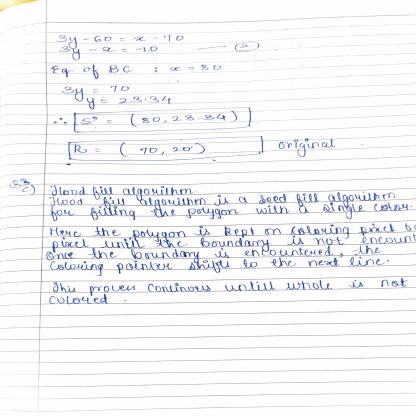 3y - 60 = x - 70
3y - x = -10 —— (2)
Eq of BC : x = 80
3y = 70
y = 23.34
∴ [S = (80, 23.34)]
[R = (70, 20)] original
Flood fill algorithm
Flood fill algorithm is a seed fill algorithm
for filling the polygon with a single color.
Here the polygon is kept on coloring pixel
pixel until the boundary is not encount
Once the boundary is encountered, the
coloring pointer shifts to the next line.
This process continous untill whole is not
colored.